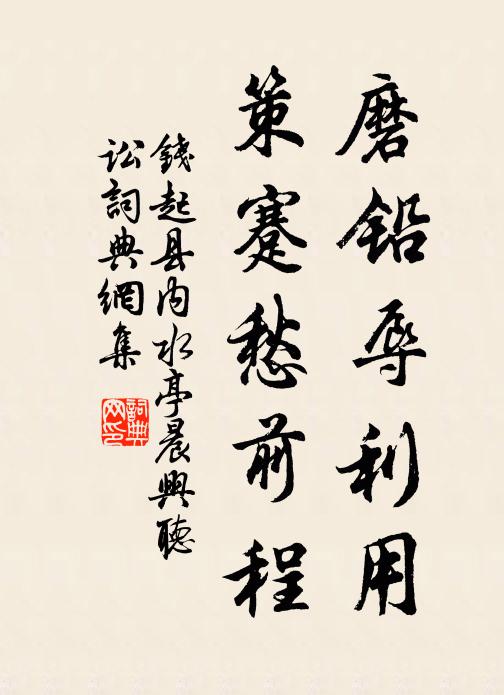 磨鉛辱利用
策蹇愁前程
錢起县内水亭晨興聽
訟詞典網集
詞典
网印